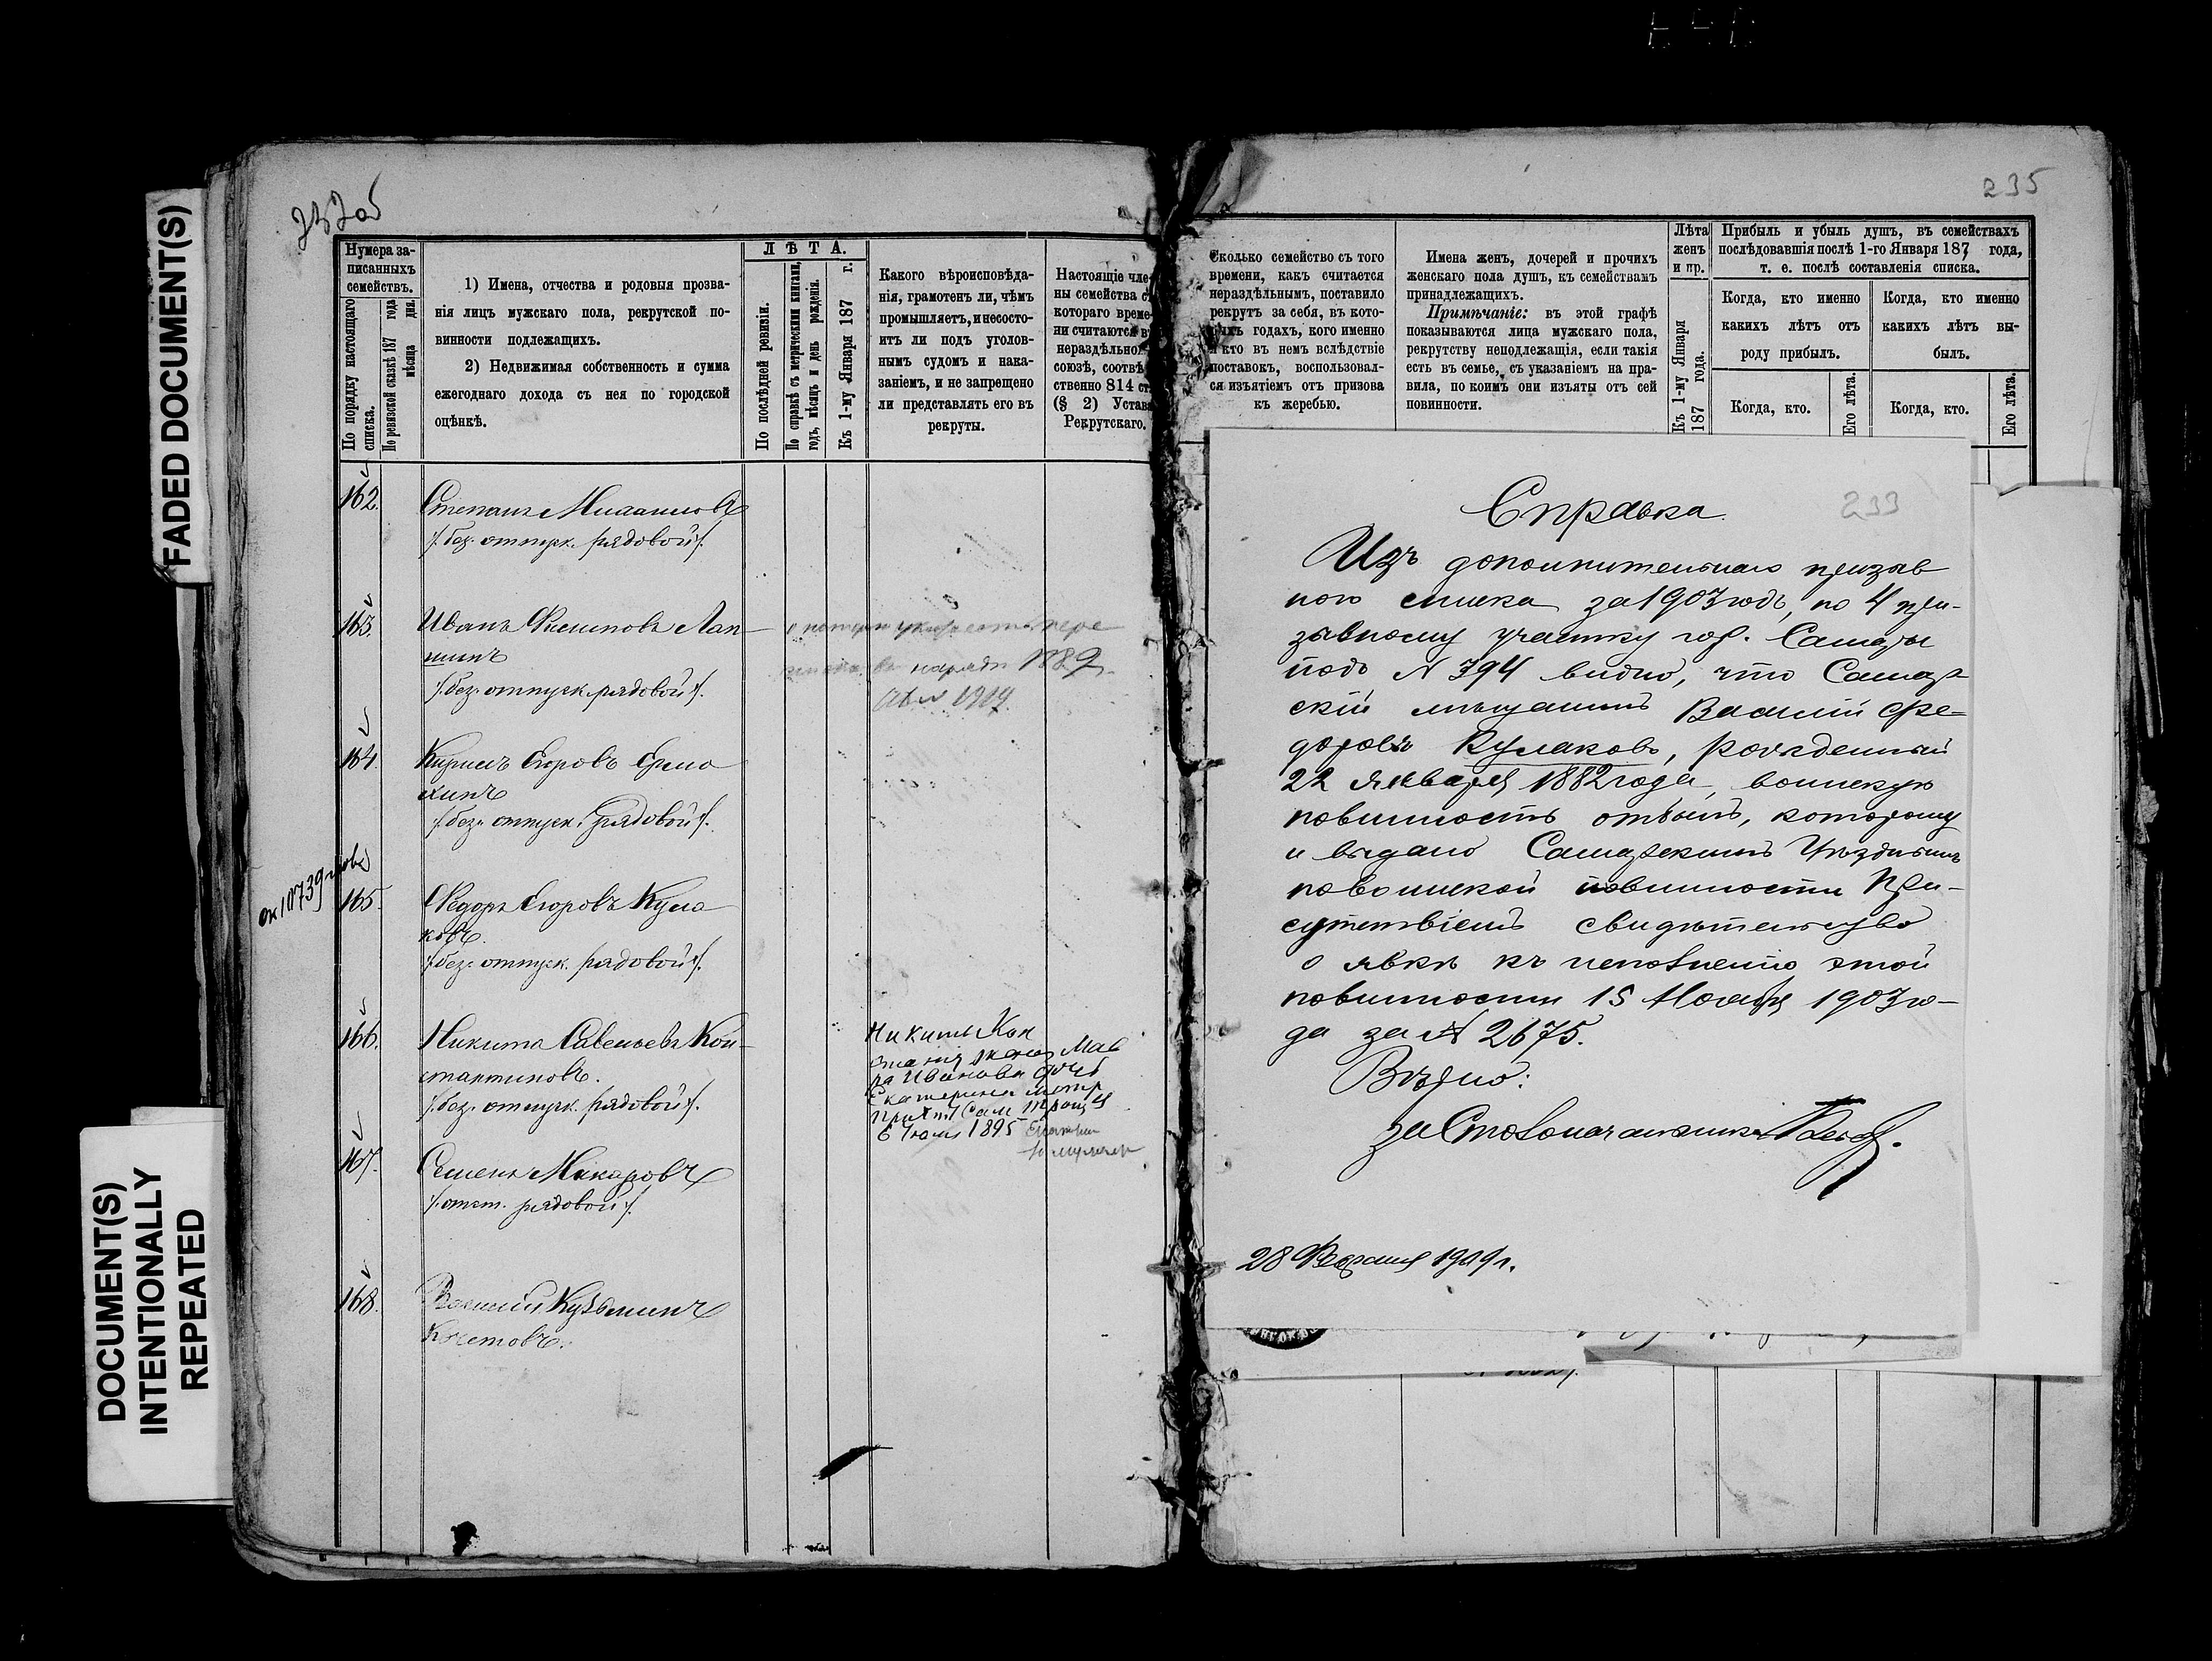 FADED DOCUMENT(S)
DOCUMENT(S)
INTENTIONALLY
REPEATED
235
Нумера за-
писанныхъ
семействъ.
По порядку настоящаго
списка.
По ревизской сказкѣ 187 года
мѣсяца дня.
1) Имена, отчества и родовыя прозва-
нія лицъ мужскаго пола, рекрутской по-
винности подлежащихъ.
2) Недвижимая собственность и сумма
ежегоднаго дохода съ нея по городской
оцѣнкѣ.
ЛѢТА.
По послѣдней ревизіи.
По справкѣ съ метрическими книгами,
годъ, мѣсяцъ и день рожденія.
Къ 1-му Января 187 г.
Какого вѣроисповѣда-
нія, грамотенъ ли, чѣмъ
промышляетъ, и несосто-
итъ ли подъ уголов-
нымъ судомъ и нака-
заніемъ, и не запрещено
ли представлять его въ
рекруты.
Настоящіе чле-
ны семейства съ
котораго време-
ни считаются въ
нераздѣльномъ
союзѣ, соотвѣт-
ственно 814 ст.
(§ 2) Устава
Рекрутскаго.
Сколько семейство съ того
времени, какъ считается
нераздѣльнымъ, поставило
рекрутъ за себя, въ кото-
рыхъ годахъ, кого именно
и кто въ немъ вслѣдствіе
поставокъ, воспользовал-
ся изъятіемъ отъ призова
къ жеребью.
Имена женъ, дочерей и прочихъ
женскаго пола душъ, къ семействамъ
принадлежащихъ.
Примѣчаніе: въ этой графѣ
показываются лица мужскаго пола,
рекрутству неподлежащія, если такія
есть въ семьѣ, съ указаніемъ на пра-
вила, по коимъ они изъяты отъ сей
повинности.
Лѣта
женъ
и пр.
Къ 1-му Января
187 года.
Прибыль и убыль душъ, въ семействахъ
послѣдовавшія послѣ 1-го Января 187 года,
т. е. послѣ составленія списка.
Когда, кто именно
какихъ лѣтъ отъ
роду прибылъ.
Когда, кто именно
какихъ лѣтъ вы-
былъ.
Когда, кто.
Его лѣта.
Когда, кто.
Его лѣта.
162. Степанъ Михаиловъ
/:без. отпуск. рядовой:/.
163. Иванъ Филиповъ Лап-
шинъ
/:без. отпуск. рядовой:/.
164. Кирилъ Егоровъ Ермо
хинъ
/:без. отпуск. рядовой:/.
165. Ѳедоръ Егоровъ Кула
ковъ.
/:без. отпуск. рядовой:/.
166. Никита Савельевъ Кон-
стантиновъ.
/:без. отпуск. рядовой:/.
Никиты Кон
жена Мав
ра Иванова дочь
Екатерина метр
6 Іюля 1895
167. Семенъ Макаровъ
/:отст. рядовой:/.
168. Василій Кузьминъ
Кочетовъ.
233
Справка.
Изъ дополнительнаго призыв
ного списка за 1903 годъ, по 4 при-
зывному участку гор. Самары
подъ № 394 видно, что Самар
скій мѣщанинъ Василій Ѳе-
доровъ Кулаковъ, рожденный
22 января 1882 года, воинскую
повинность отбылъ, которому
и выдано Самарскимъ Уѣзднымъ
по воинской повинности При-
сутствіемъ свидѣтельство
о явкѣ къ исполненію этой
повинности 15 Ноября 1903 го-
да за № 2675.
Вѣрно:
За Столоначальника
28 Февраля 1909 г.